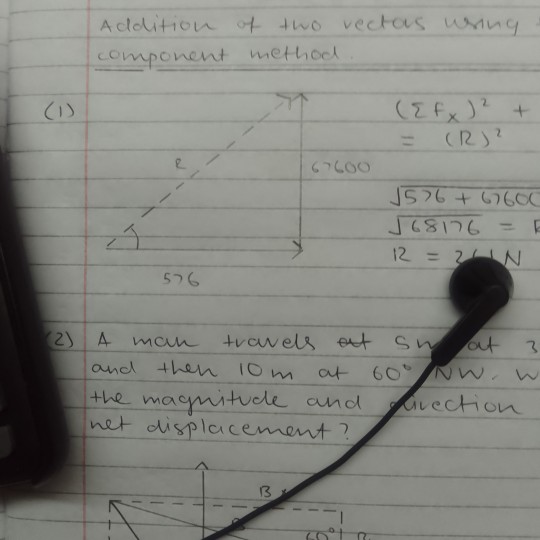 Addition of two vectors using
component method.
(1)
(ΣFx)² +
= (R)²
R
67600
√576 + 67600
√68176 =
R = 261N
576
(2) A man travels at 5m at 3
and then 10m at 60° NW. W
the magnitude and direction
net displacement?
B
60°